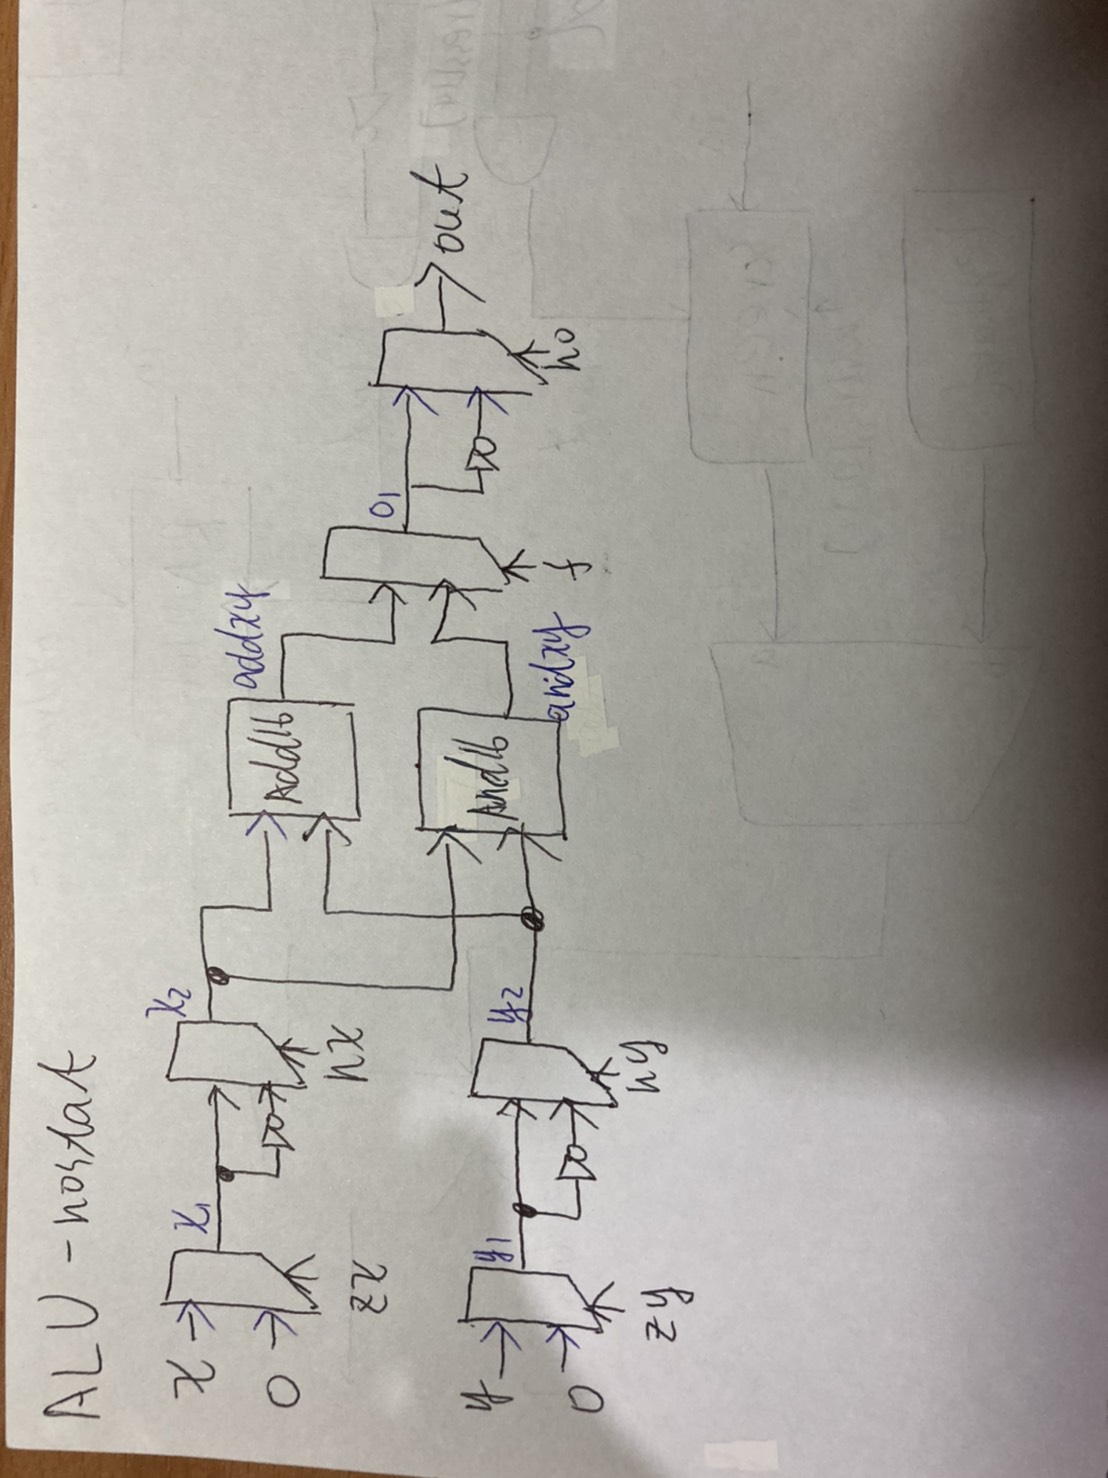 ALU - nostat
x
0
zx
x1
nx
x2
y
0
zy
y1
ny
y2
Add16
addxy
And16
andxy
f
o1
no
out